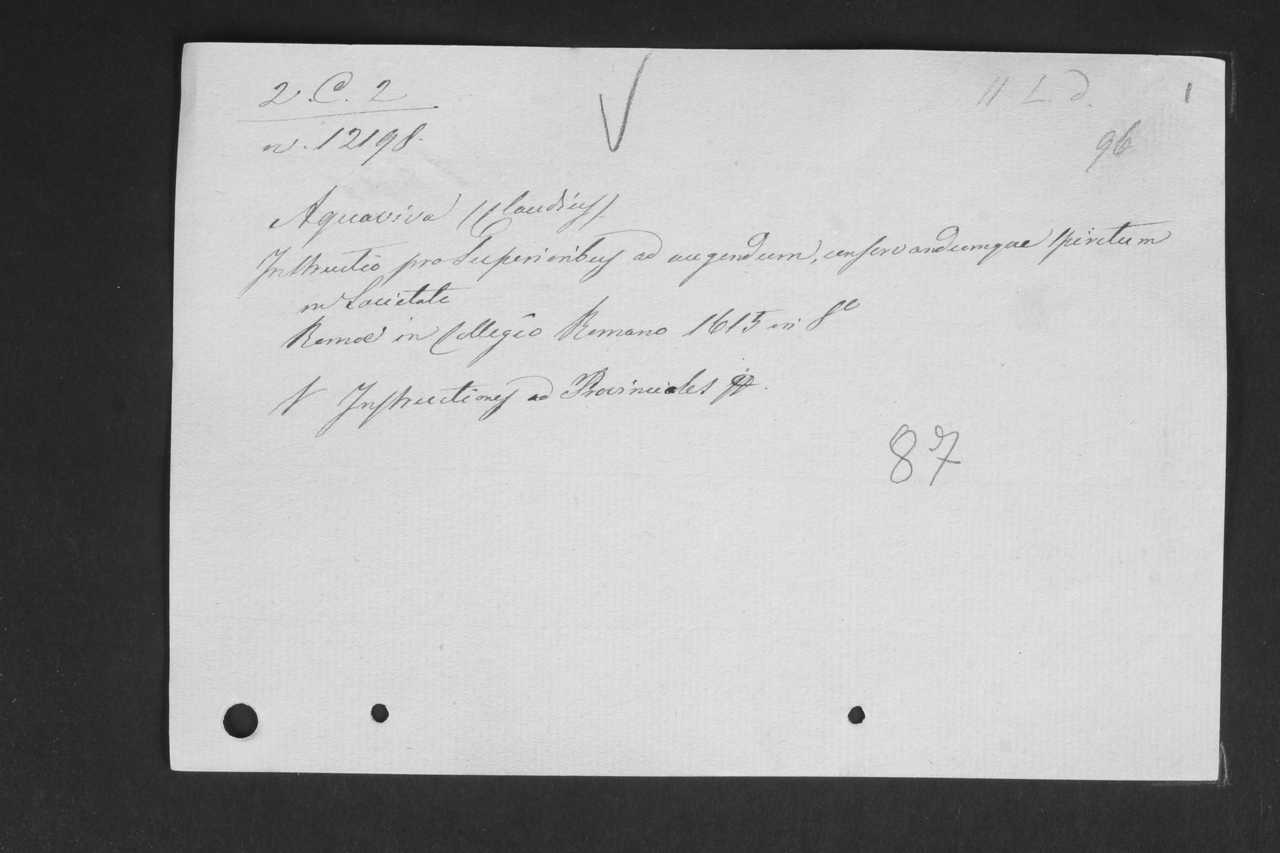 2. C. 2
11 L. d.
1
n. 12198.
96
Aquaviva (Claudius)
Instructio pro Superioribus ad augendum, conservandumque spiritum
in Societate
Romæ in Collegio Romano 1615 in 8º
V Instructiones ad Provinciales
87